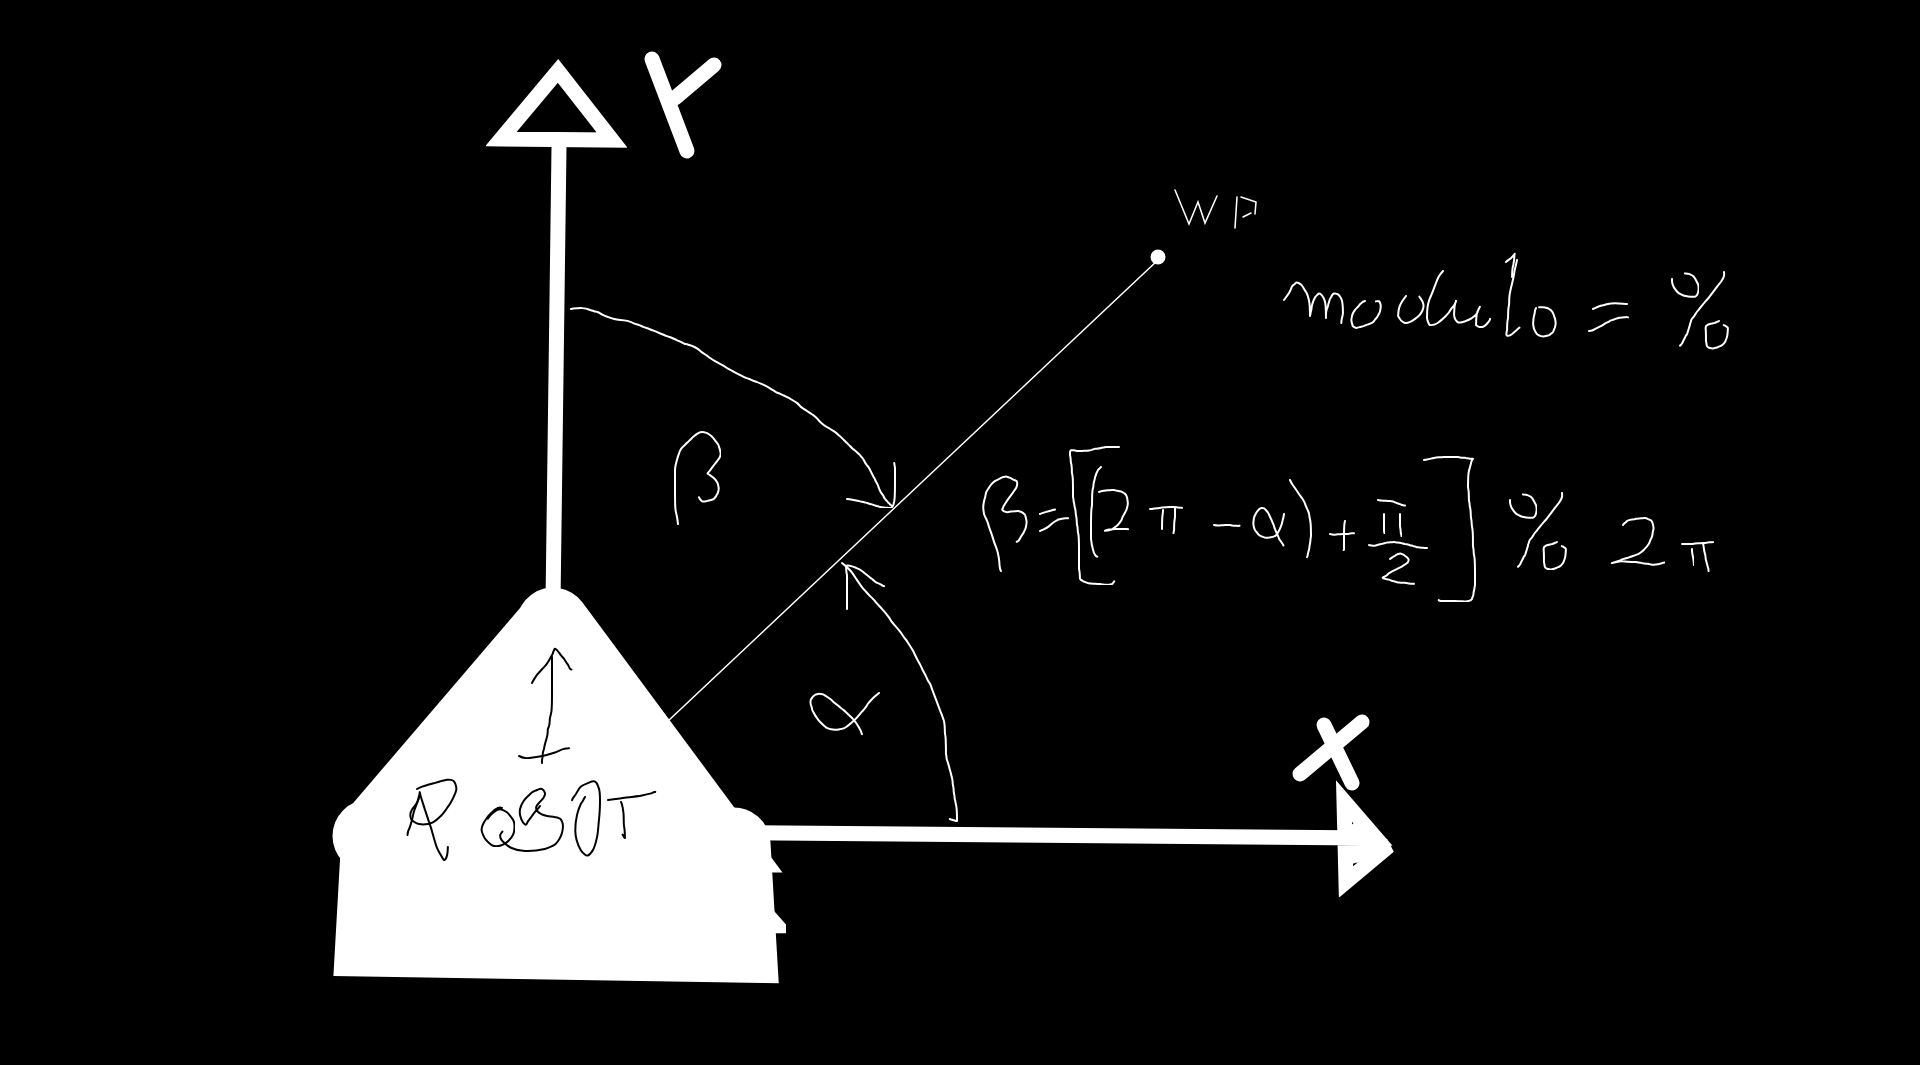 Y
WP
modulo = %
β
β = [(2π - α) + π/2] % 2π
α
X
ROBOT